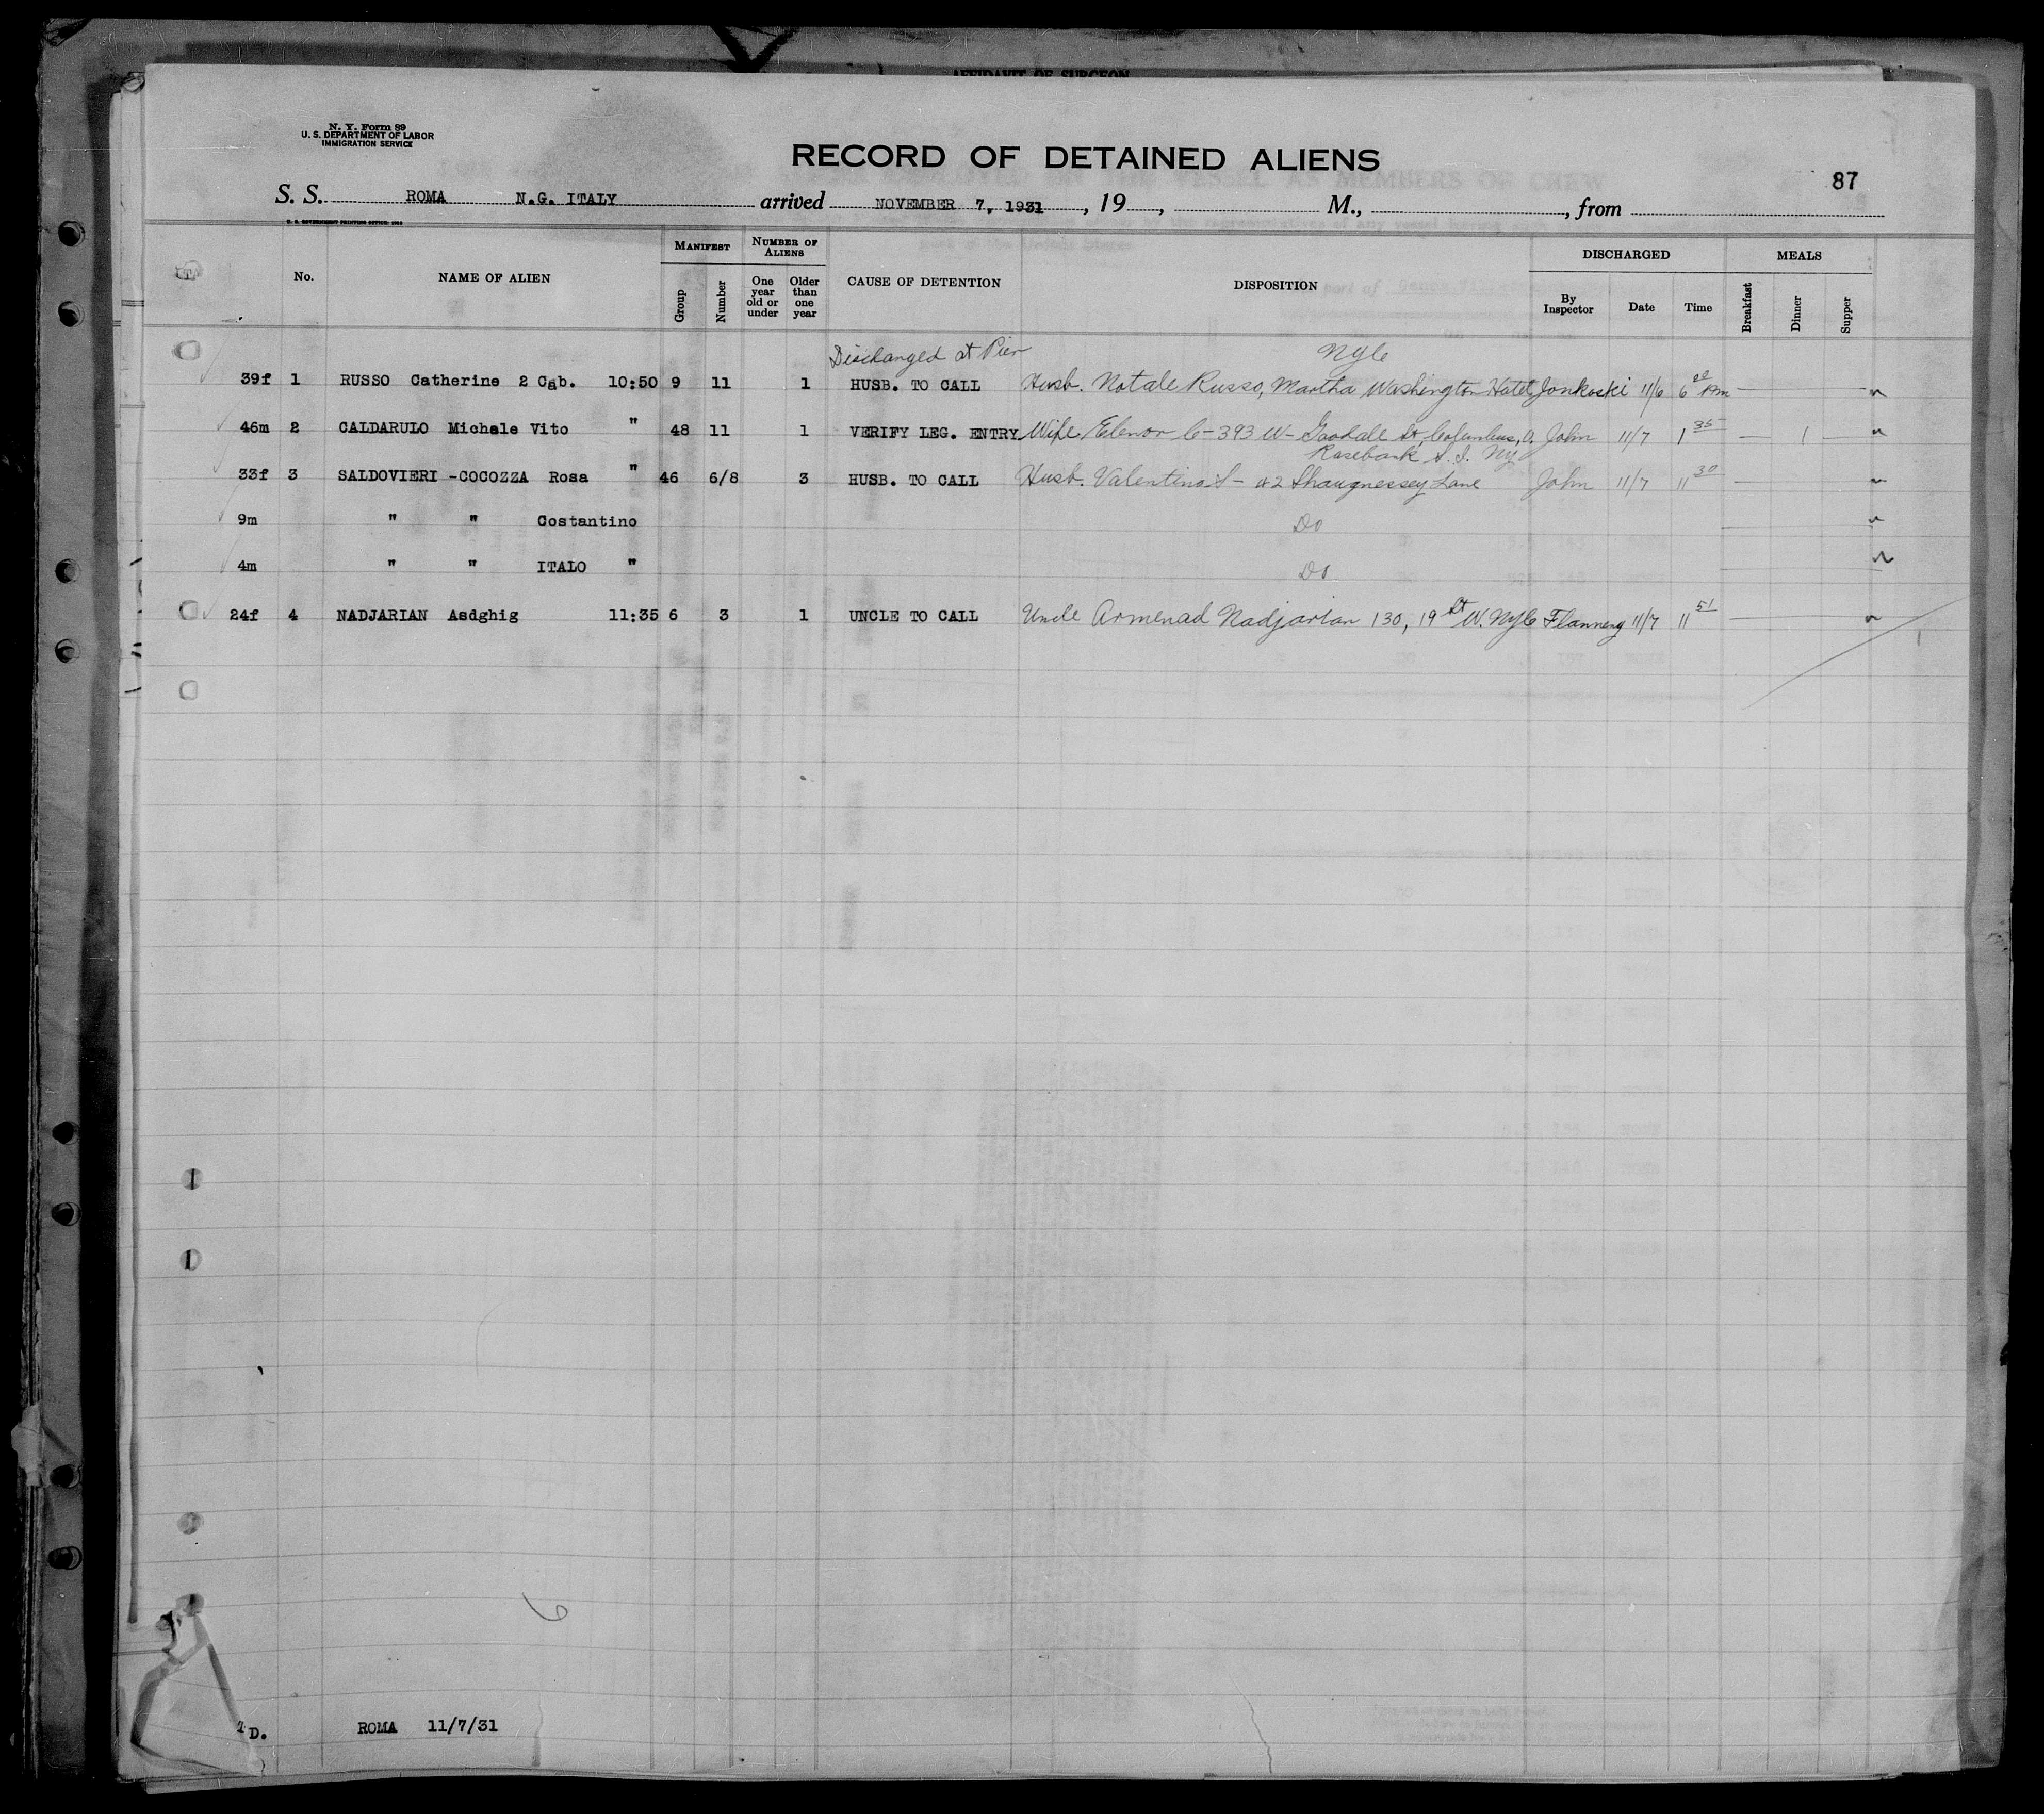 AFFIDAVIT OF SURGEON
N. Y. Form 89
U. S. DEPARTMENT OF LABOR
IMMIGRATION SERVICE
RECORD OF DETAINED ALIENS
87
S. S. ROMA N.G. ITALY arrived NOVEMBER 7, 1931, 19 , M., , from
MANIFEST NUMBER OF ALIENS DISCHARGED MEALS
No. NAME OF ALIEN Group Number One year old or under Older than one year CAUSE OF DETENTION DISPOSITION By Inspector Date Time Breakfast Dinner Supper
Discharged at Pier NYC
39f 1 RUSSO Catherine 2 Cab. 10:50 9 11 1 HUSB. TO CALL Husb. Natale Russo, Martha Washington Hotel Jonkoski 11/6 6 00 PM —
46m 2 CALDARULO Michele Vito " 48 11 1 VERIFY LEG. ENTRY Wife Elenor C- 393 W- Goodale St, Columbus, O. John 11/7 1 35 — 1 —
Rosebank S. I. NY
33f 3 SALDOVIERI -COCOZZA Rosa " 46 6/8 3 HUSB. TO CALL Husb. Valentino S- 42 Shaugnessey Lane John 11/7 11 30 —
9m " " Costantino Do
4m " " ITALO " Do
24f 4 NADJARIAN Asdghig 11:35 6 3 1 UNCLE TO CALL Uncle Armenad Nadjarian 130, 19 St W. NYC Flannery 11/7 11 51 —
6
D. ROMA 11/7/31